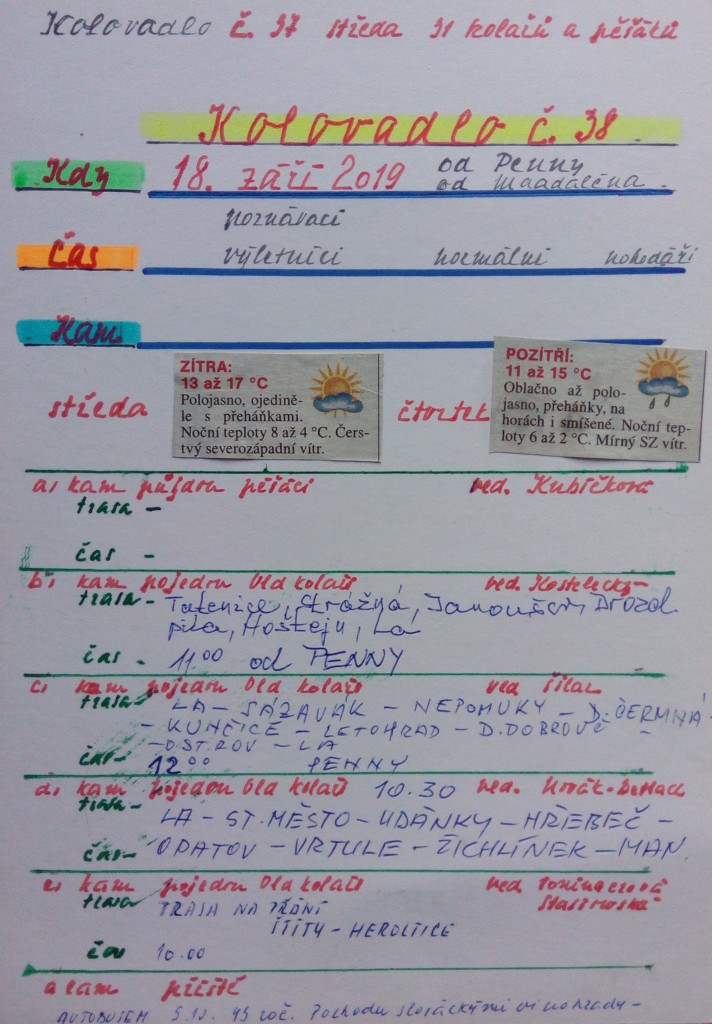 Kolovadlo č. 37 středa 31 kolařů a pěšáků
Kolovadlo č. 38
Kdy 18. září 2019 od Penny
od Magdaléna
poznávací
Čas výletníci normální pohodáři
Kam
ZÍTRA:
13 až 17 °C
Polojasno, ojedině-
le s přeháňkami.
Noční teploty 8 až 4 °C. Čers-
tvý severozápadní vítr.
POZÍTŘÍ:
11 až 15 °C
Oblačno až polo-
jasno, přeháňky, na
horách i smíšené. Noční tep-
loty 6 až 2 °C. Mírný SZ vítr.
středa čtvrtek
a) kam půjdou pěšáci ved. Kubíčková
trasa -
čas -
b) kam pojedou Old kolaři ved. Kostelecký
trasa - Tatenice, Strážná, Janoušov, Drozd.
pila, Hoštejn, La
čas - 11.00 od PENNY
c) kam pojedou Old kolaři ved
trasa - LA - SÁZAVÁK - NEPOMUKY - D. ČERMNÁ
- KUNČICE - LETOHRAD - D. DOBROUČ -
- OSTROV - LA
čas - 12 00 PENNY
d) kam pojedou Old kolaři 10.30 ved. Novák
trasa - LA - ST. MĚSTO - UDÁNKY - HŘEBEČ -
čas - OPATOV - VRTULE - ŽICHLÍNEK - MAN.
e) kam pojedou Old kolaři ved
trasa TRASA NA PŘÁNÍ
ŠTÍTY - HEROLTICE
čas 10.00
a kam příště
AUTOBUSEM 5.10. 45 roč. Pochodu slováckými vinohrady -